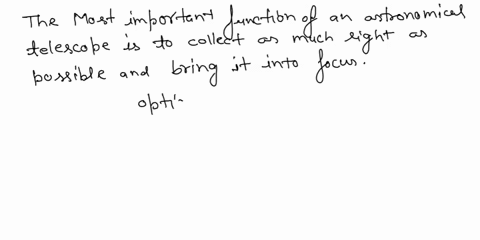 The Most important function of an astronomical
telescope is to collect as much right as
possible and bring it into focus.
opti